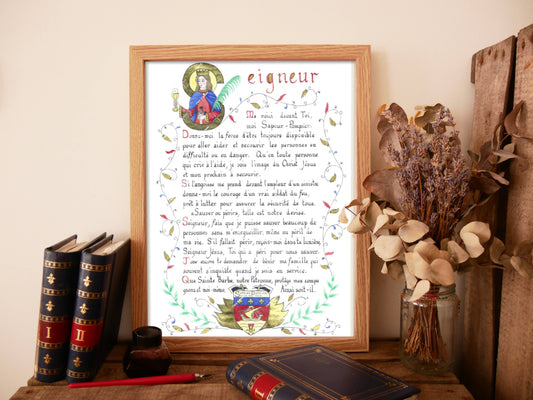 Seigneur
Me voici devant Toi,
moi Sapeur-Pompier.
Donne-moi la force d'être toujours disponible
pour aller aider et secourir les personnes en
difficulté ou en danger. Qu'en toute personne
qui crie à l'aide, je vois l'image du Christ Jésus
et mon prochain à secourir.
Si l'angoisse me prend devant l'ampleur d'un sinistre
donne-moi le courage d'un vrai soldat du feu,
prêt à lutter pour assurer la sécurité de tous.
"Sauver ou périr", telle est notre devise.
Seigneur, fais que je puisse sauver beaucoup de
personnes sans m'enorgueillir, même au péril de
ma vie. S'il fallait périr, reçois-moi dans ta lumière,
Seigneur Jésus, Toi qui as péri pour nous sauver.
J'ose encore te demander de bénir ma famille qui
souvent s'inquiète quand je suis en service.
Que Sainte Barbe, notre Patronne, protège mes compa-
gnons et moi-même. Ainsi soit-il.
I
II